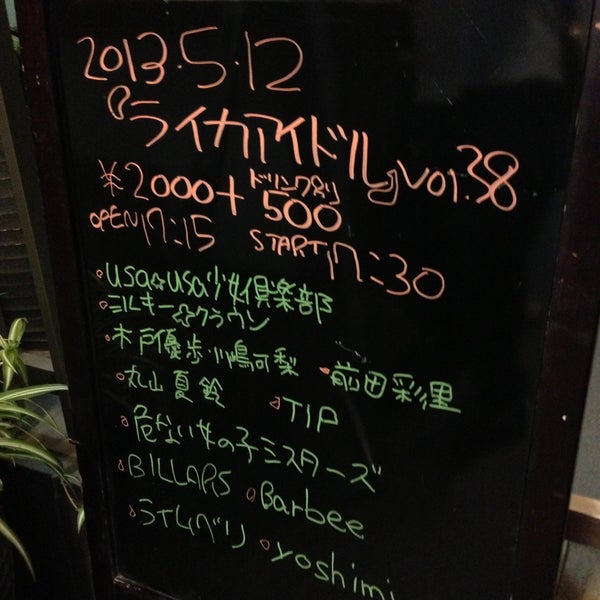 2013.5.12
『ライカアイドル』vol.38
¥2000+ドリンク別500
OPEN17:15 START17:30
・usa☆usa少女倶楽部
・ミルキー☆クラウン
・木戸優歩・川嶋可梨 ・前田彩里
・丸山夏鈴 ・TIP
・危ない女の子シスターズ
・BILLARS ・Barbee
・ライムベリー ・yoshimi